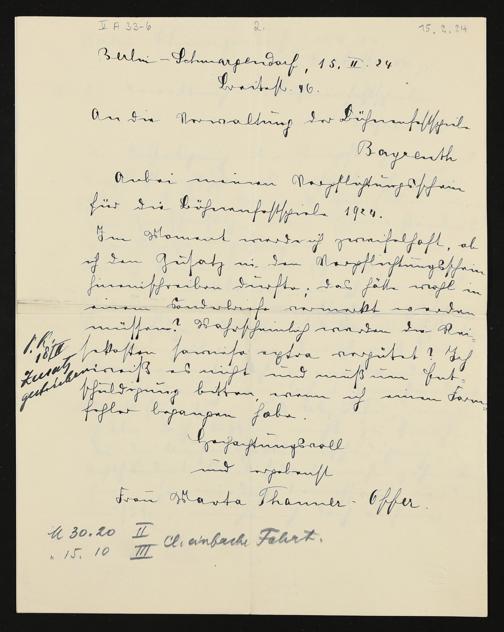 V A 33-6
2.
15. 2. 24
Berlin-Schmargendorf, 15. II. 24
Breitestr. 46.
An die Verwaltung der Bühnenfestspiele
Bayreuth
Anbei meinen Verpflichtungsschein
für die Bühnenfestspiele 1924.
Im Moment werde ich zweifelhaft, ob
ich den Zusatz in den Verpflichtungsschein
hineinschreiben durfte, das hätte wohl in
einem Sonderbriefe vermerkt werden
müssen? Wahrscheinlich werden die Rei-
sekosten sowieso extra vergütet? Ich
weiß es nicht und muß um Ent-
schuldigung bitten, wenn ich einen Form-
fehler begangen habe.
Hochachtungsvoll
und ergebenst
Frau Marta Thanner-Offer.
18/II
Zusatz
geschrieben
M 30.20 II
" 15.10 III Cl. einfache Fahrt.